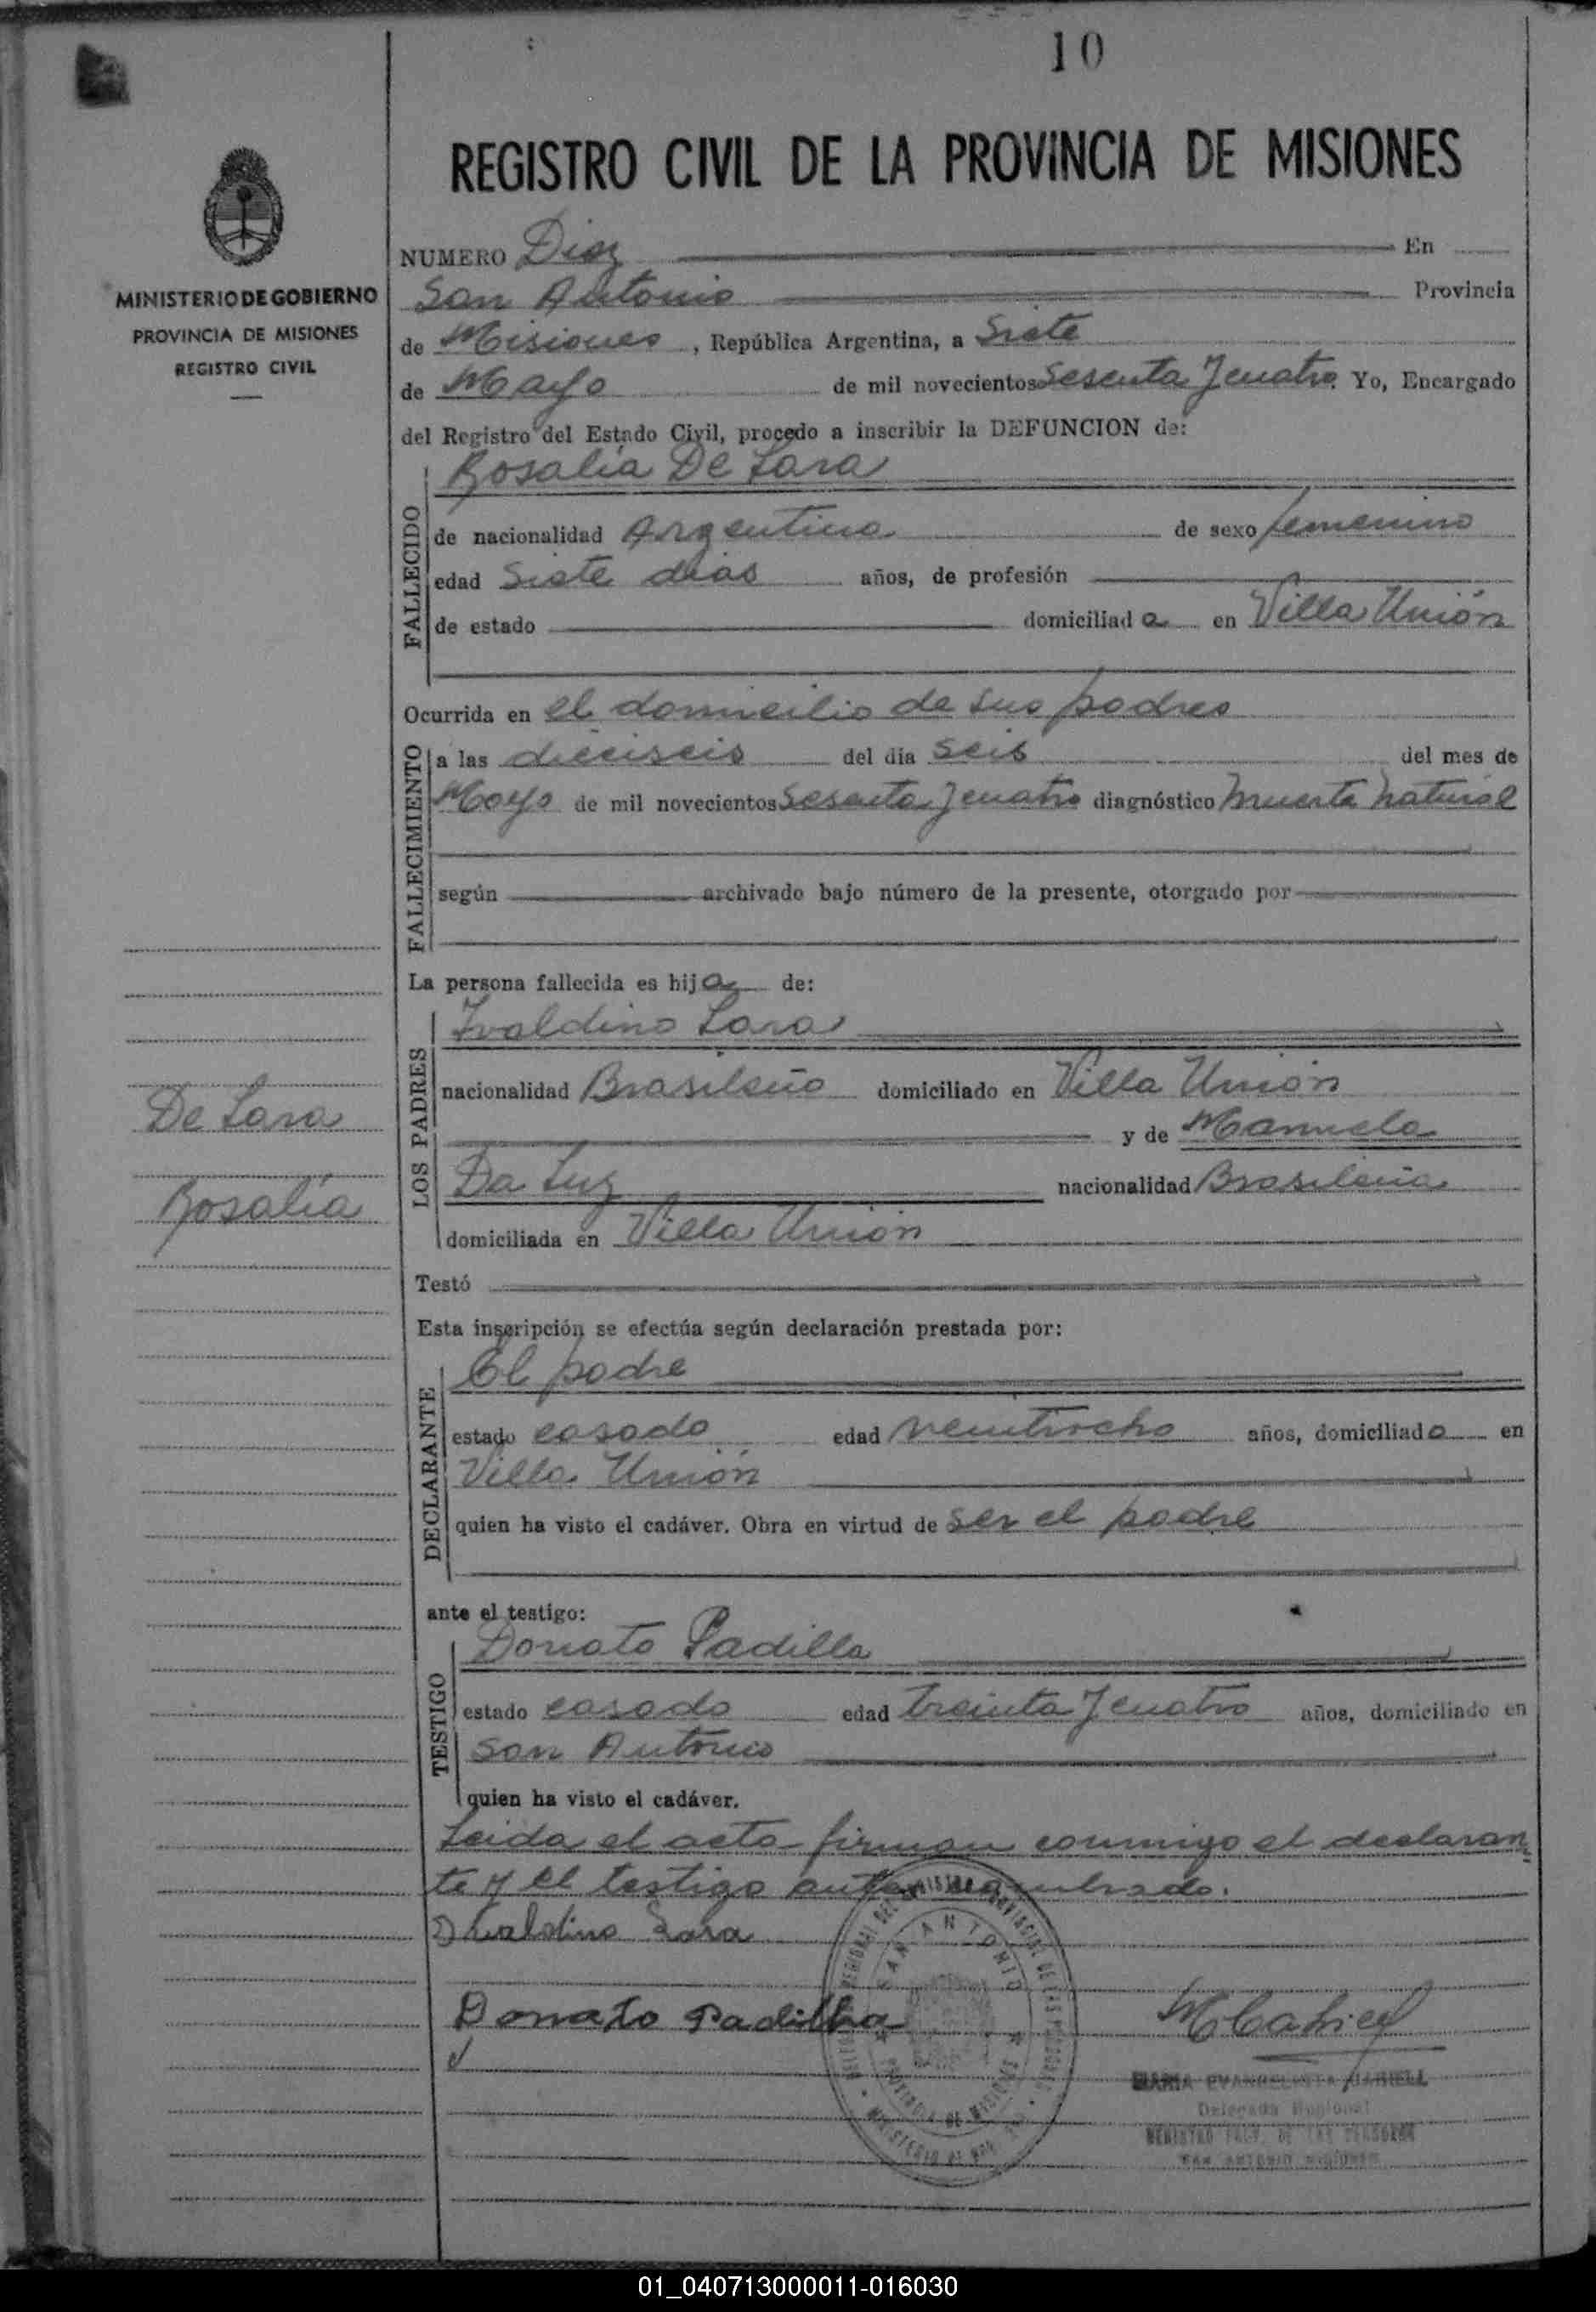 10
REGISTRO CIVIL DE LA PROVINCIA DE MISIONES
MINISTERIO DE GOBIERNO
PROVINCIA DE MISIONES
REGISTRO CIVIL
NUMERO Diez En
San Antonio Provincia
de Misiones, República Argentina, a Siete
de Mayo de mil novecientos Sesenta y cuatro. Yo, Encargado
del Registro del Estado Civil, procedo a inscribir la DEFUNCION de:
Rosalia De Lara
FALLECIDO
de nacionalidad Argentina de sexo femenino
edad Siete dias años, de profesión
de estado domiciliad a en Villa Unión
Ocurrida en el domicilio de sus padres
FALLECIMIENTO
a las dieciseis del día seis del mes de
Mayo de mil novecientos Sesenta y cuatro diagnóstico muerte natural
según archivado bajo número de la presente, otorgado por
La persona fallecida es hija de:
LOS PADRES
Ivaldino Lara
nacionalidad Brasileño domiciliado en Villa Unión
y de Manuela
Da Luz nacionalidad Brasileña
domiciliada en Villa Unión
De Lara
Rosalia
Testó
Esta inscripción se efectúa según declaración prestada por:
DECLARANTE
El padre
estado casado edad veintiocho años, domiciliado en
Villa Unión
quien ha visto el cadáver. Obra en virtud de ser el padre
ante el testigo:
TESTIGO
Donato Padilla
estado casado edad treinta y cuatro años, domiciliado en
San Antonio
quien ha visto el cadáver.
Leida el acta firman conmigo el declaran
te y el testigo
Lara
Donato Padilha
SAN ANTONIO
PROVINCIA DE MISIONES
MARIA EVANGELISTA
Delegada Regional
REGISTRO PROV. DE LAS PERSONAS
SAN ANTONIO MISIONES
01_040713000011-016030